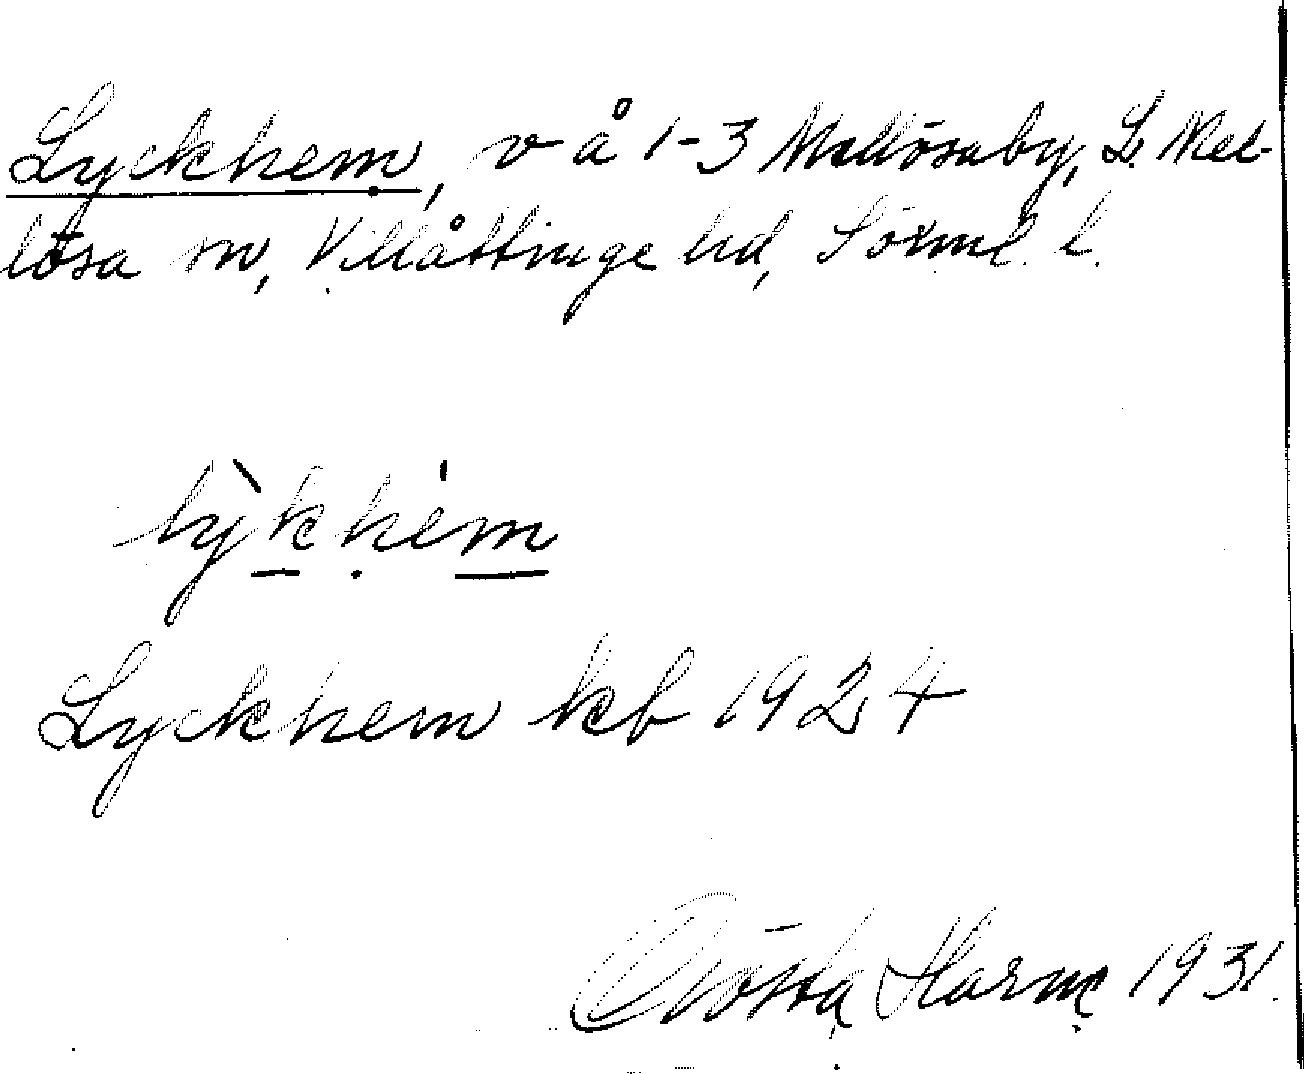 Lyckhem, v å 1-3 Mellösaby, L. Mel-
lösa sn, Villåttinge hd, Sörml. l.
lỳkhem
Lyckhem kb 1924
Gösta Harme 1931.